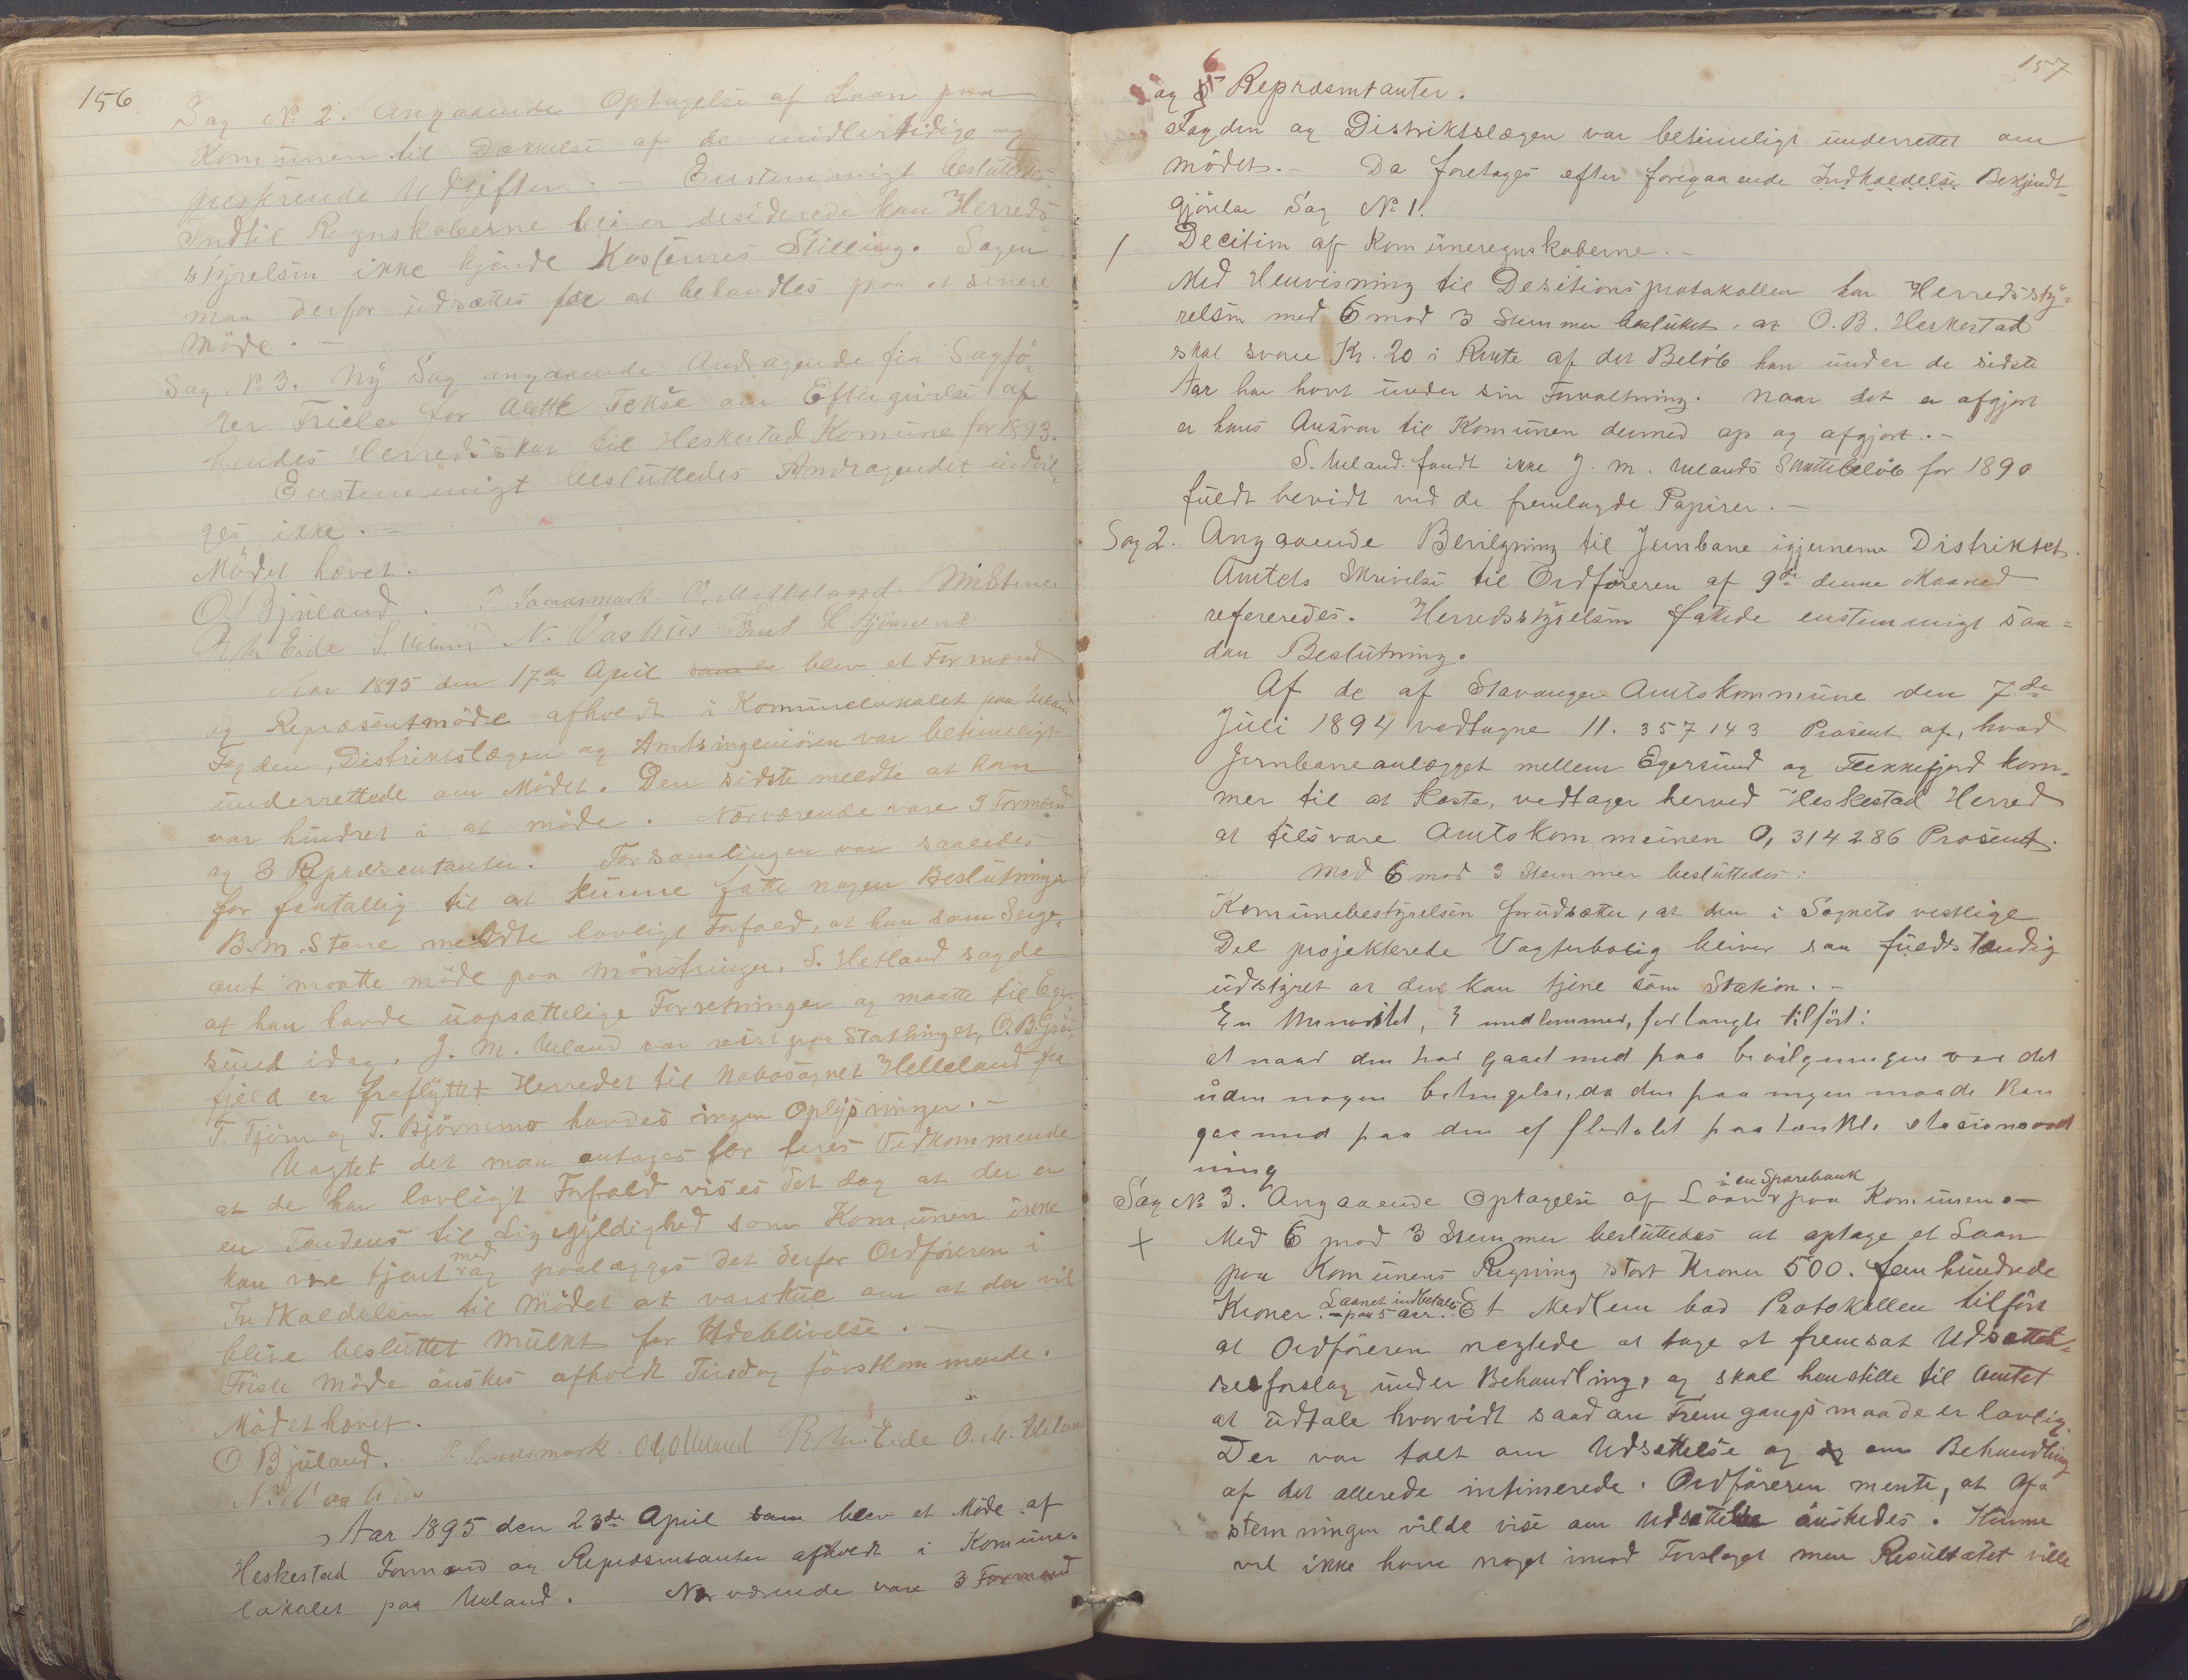 156
Sag No 2. Angaaende Optagelse af Laan paa
Komunen til Dækkelse af de midlertidige og
presserende Udgifter. - Enstemmigt besluttedes
Indtil Regnskaberne bliver desiderede kan Herreds-
styrelsen ikke kjende Kassernes Stilling. Sagen
maa derfor udsættes for at behandles paa et senere
Møde. -
Sag No 3. Ny Sag angaaende Andragende fra Sagfø-
rer Friele for Alette Tekse om Eftergivelse af
hendes Herredsskat til Heskestad Komune for 1893.
Enstemmigt besluttedes Andragendet indvil-
ges ikke. -
Mødet hævet.
O. Bjuland. P. Samanmark. O. M. Ueland.
R M Eide S. Ueland N. Vashus
Aar 1895 den 17de April samle blev et Formænd
og Repræsentmøde afholdt i Komunelokalet paa Ueland
Fogden, Distriktslægen og Amtsingeniøren var betimeligt
underrettede om Mødet. Den sidste meldte at han
var hindret i at møde. Nærværende vare 3 Formænd
og 3 Repræsentanter. Forsamlingen var saaledes
for faatallig til at kunne fatte nogen Beslutninger
B. M. Stene meldte lovligt Forfald, at han som Serge-
ant maatte møde paa Mønstringer. S. Hetland sagde
at han havde uopsættelige Forretninger og maatte til Eger-
sund idag. J. M. Ueland var reist paa Stathinget, O. B. Grøs-
fjeld er fraflyttet Herredet til Nabosognet Helleland fra
T. Tjørn og T. Bjørnemo havdes ingen Oplysninger. -
Uagtet det maa antages for deres Vedkommende
at de har lovligt Forfald vises det dog at der er
en Tendens til Ligegyldighed som Komunen ikke
kan være tjent med og paalægges det derfor Ordføreren i
Indkaldelsen til Mødet at varskue om at der vil
blive besluttet Mulkt for Udeblivelse. -
Første Møde ønskes afholdt Tirsdag førstkommende.
Mødet hævet.
O Bjuland. P. Samanmark. O G Ueland R M. Eide O. M. Ueland
N. Vashus
Aar 1895 den 23de April sam blev et Møde af
Heskestad Formænd og Repræsentanter afholdt i Komune-
lokalet paa Ueland. Nærværende vare 3 Formænd
157
6
og 5 Repræsentanter.
Fogden og Distriktslægen var betimeligt underrettet om
Mødet. - Da foretages efter foregaaende Indkaldelse Bekjendt-
gjørelse Sag No 1.
/ Decition af Komuneregnskaberne. -
Med Henvisning til Desitionsprotokollen har Herredssty-
relsen med 6 mod 3 Stemmer besluttet, at O. B. Heskestad
skal svare Kr. 20 i Rente af det Beløb han under de sidste
Aar har havt under sin Forvaltning. Naar det er afgjort
er hans Ansvar til Komunen dermed op og afgjort. -
S. Ueland fandt ikke J. M. Uelands Skattebeløb for 1890
fuldt bevidt ved de fremlagde Papirer. -
Sag 2. Angaaende Bevilgning til Jernbane igjennem Distriktet.
Amtets Skrivelse til Ordføreren af 9de denne Maaned
refereredes. Herredsstyrelsen fattede enstemmigt saa-
dan Beslutning.
Af de af Stavanger Amtskommune den 7de
Juli 1894 vedtagne 11.357143 Prosent af, hvad
Jernbaneanlægget mellem Egersund og Flekkefjord kom-
mer til at koste, vedtager herved Heskestad Herred
at tilsvare Amtskommunen 0,314286 Prosent.
Med 6 mod 3 Stemmer besluttedes:
Komunebestyrelsen forudsætter, at den i Sognets vestlige
Del projekterede Vagterbolig bliver saa fuldstændig
udstyret at den kan tjene som Station. -
En Minoritet, 3 medlemmer, forlangte tilført:
at naar den har gaaet med paa bevilgningen var det
uden nogen betingelse, da den paa ingen maade kan
gaa med paa den af flertalet paatænkte stasionsord
ning
Sag No 3. Angaaende Optagelse af Laan i en Sparebank paa Komunen. -
+ Med 6 mod 3 Stemmer besluttedes at optage et Laan
paa Komunens Regning stort Kroner 500. fem hundrede
Kroner. - Laanet indbetales paa 5 aar. Et Medlem bad Protokollen tilført
at Ordføreren negtede at tage et fremsat Udsættel-
sesforslag under Behandling, og skal henstille til Amtet
at udtale hvorvidt saadan Fremgangsmaade er lovlig.
Der var talt om Udsættelse og og om Behandling
af det allerede intimerede. Ordføreren mente, at Af-
stemningen vilde vise om Udsættelse ønskedes. Kunne
vel ikke have noget imod Forslaget men Resultatet ville